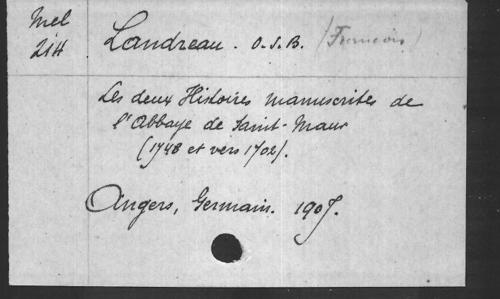 Mel
214
Landreau. O.S.B. (François)
Les deux Histoires manuscrites de
l'Abbaye de Saint-Maur
(1748 et vers 1702).
Angers, Germain. 1907.